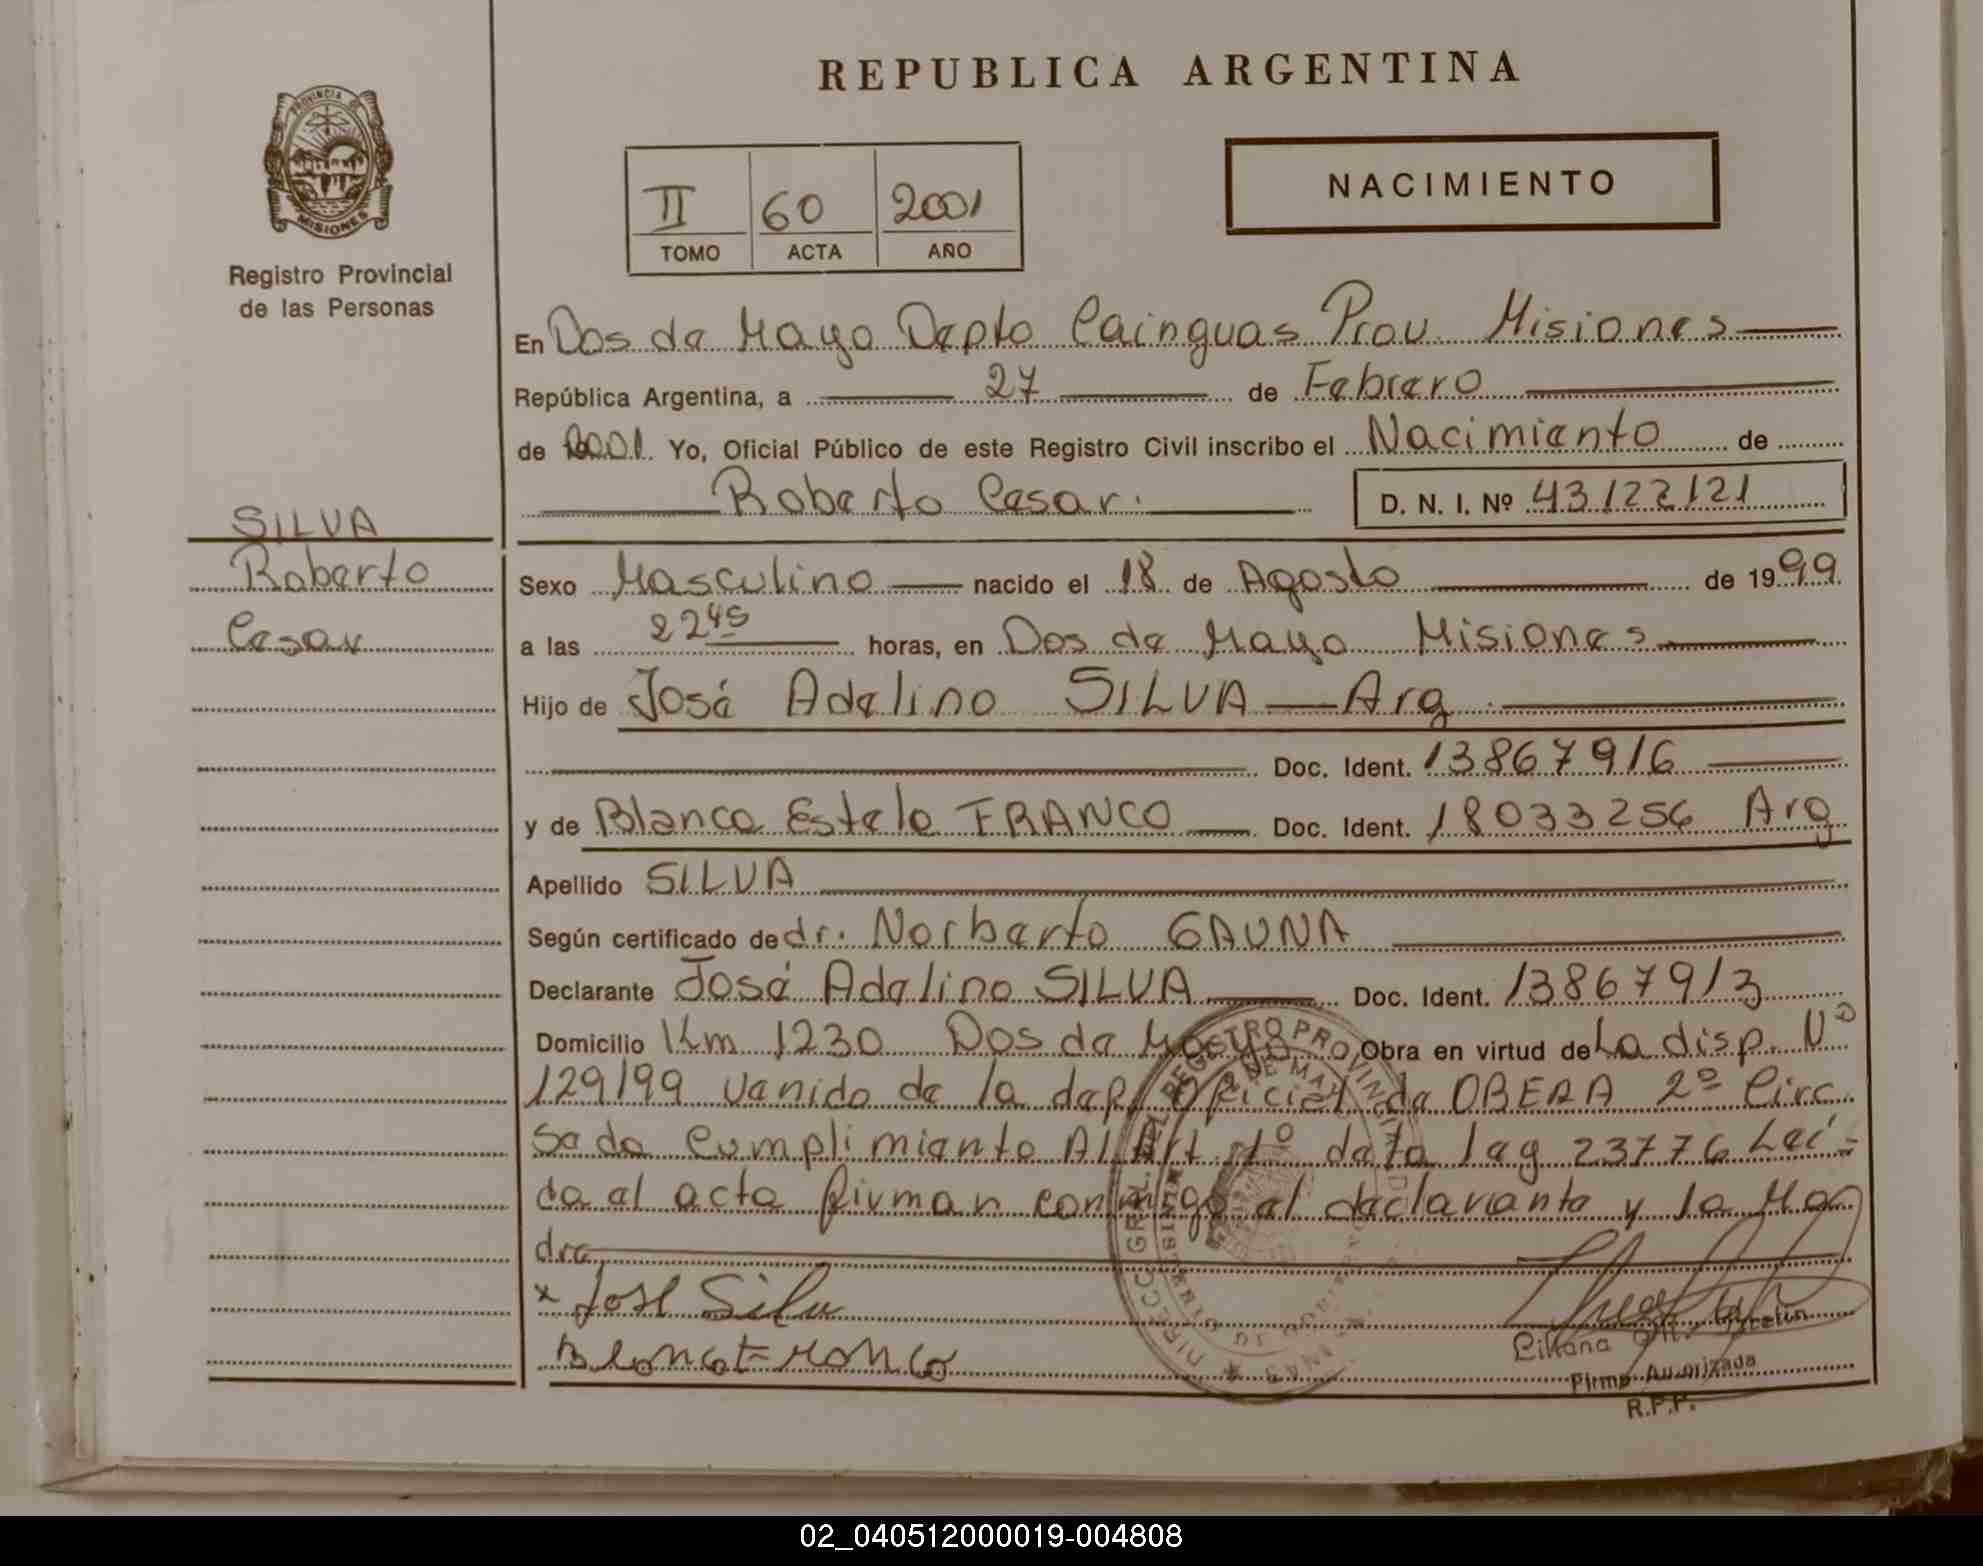 REPUBLICA ARGENTINA
PROVINCIA DE
MISIONES
Registro Provincial
de las Personas
II 60 2001
TOMO ACTA AÑO
NACIMIENTO
En Dos de Mayo Depto Cainguas Prov. Misiones
República Argentina, a 27 de Febrero
de 2001. Yo, Oficial Público de este Registro Civil inscribo el Nacimiento de
Roberto Cesar. D. N. I. Nº 43122121
SILVA
Roberto
Cesar
Sexo Masculino nacido el 18 de Agosto de 1999
a las 22 45 horas, en Dos de Mayo Misiones
Hijo de José Adelino SILVA — Arg.
Doc. Ident. 13867916
y de Blanca Estela FRANCO Doc. Ident. 18033256 Arg
Apellido SILVA
Según certificado de dr. Norberto GAUNA
Declarante José Adelino SILVA Doc. Ident. 13867913
Domicilio Km 1230 Dos de Mayo Obra en virtud de La disp. Nº
129/99 venido de la dep. Oficial de OBERA 2º Circ.
se da cumplimiento Al Art. 1º de la ley 23776 Leí-
da el acta firman conmigo el declarante y la Ma
dre
x José Silva
Blanca Franco
Firma Autorizada
R.P.P.
02_040512000019-004808